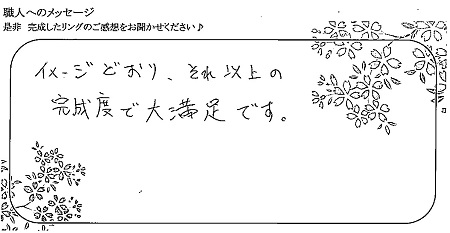 職人へのメッセージ
是非 完成したリングのご感想をお聞かせください♪
イメージどおり、それ以上の
完成度で大満足です。